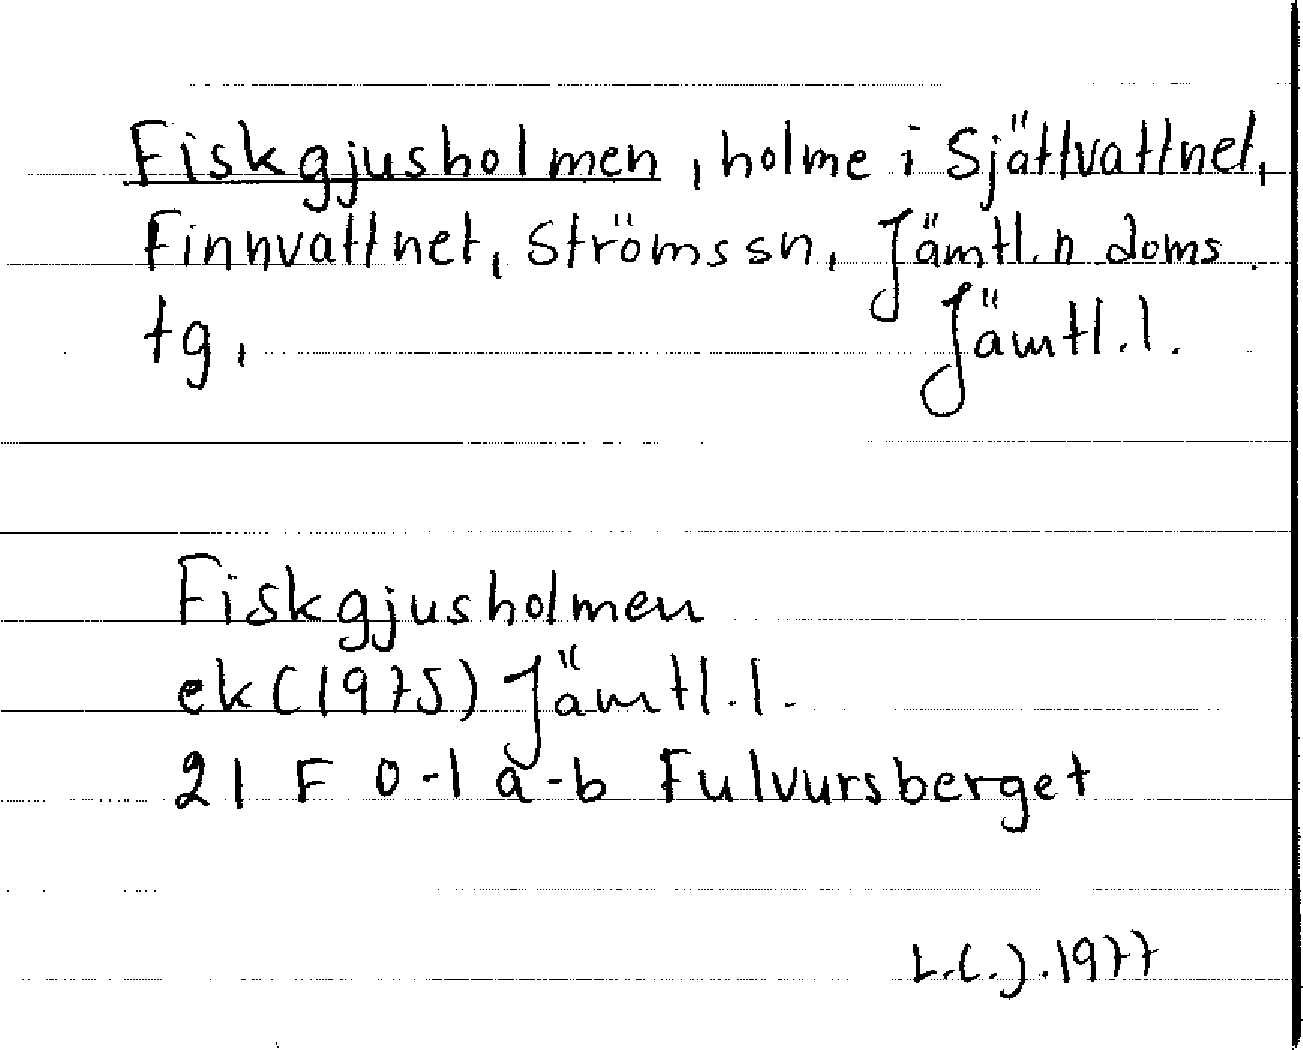 Fiskgjusholmen, holme i Sjättvattnet,
Finnvattnet, Ströms sn, Jämtl. n doms.
tg,  Jämtl. l.
Fiskgjusholmen
ek (1975) Jämtl. l.
21 F 0-1 a-b Fulvursberget
L.C.J. 1977